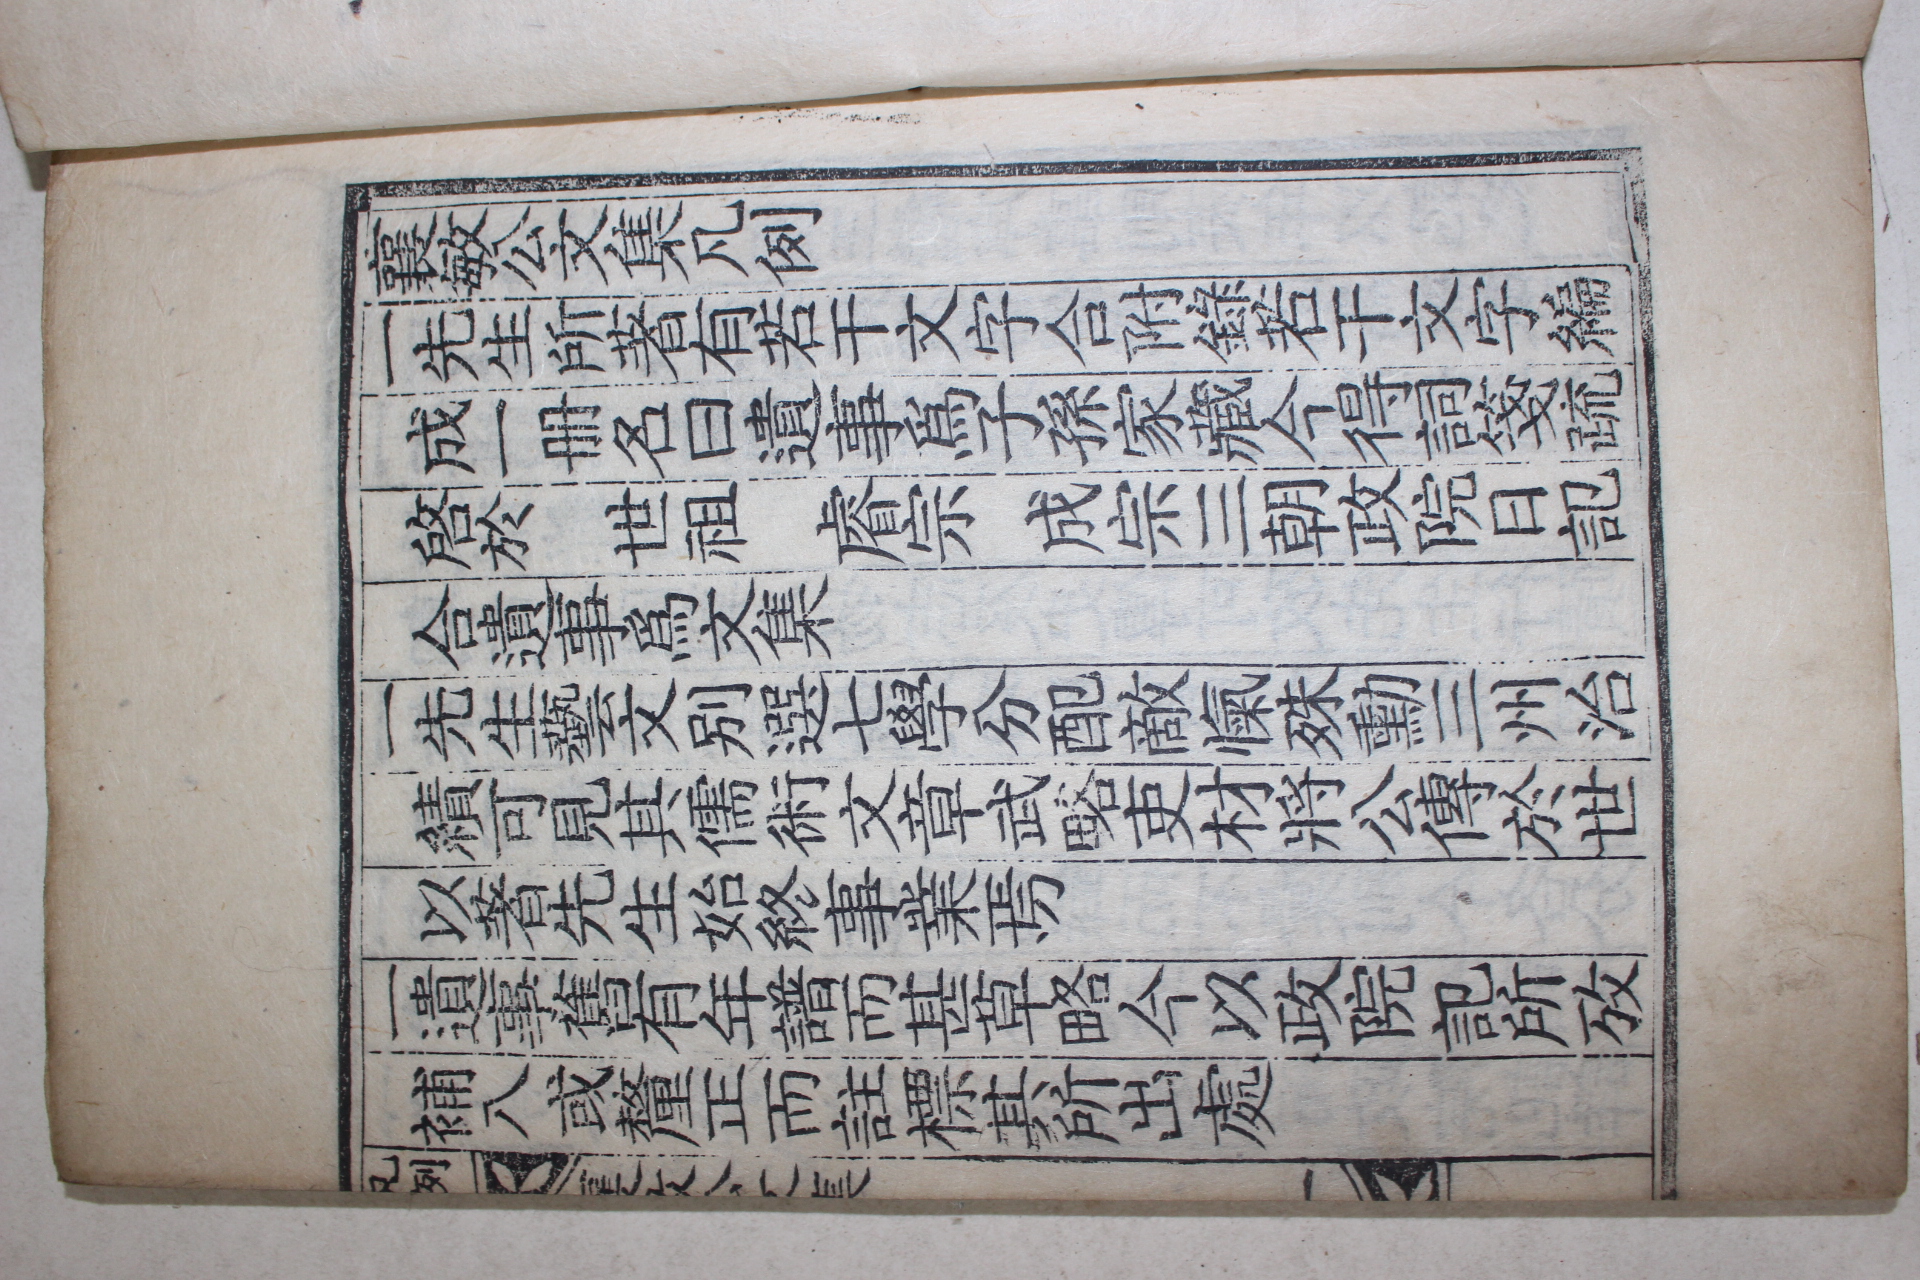 襄敏公文集凡例
一先生所著有若干文字合附錄若干文字編
成一冊名曰遺事爲子孫家藏今得詞箋疏
啓於 世祖 睿宗 成宗三朝政院日記
合遺事爲文集
一先生藝文別選七學分配敵愾殊勳三州治
績可見其儒術文章武略吏材將公傳於世
以著先生始終事業焉
一遺事舊有年譜而甚草略今以政院記所攷
補入或釐正而註標其所出處
襄敏公文集 凡例 一